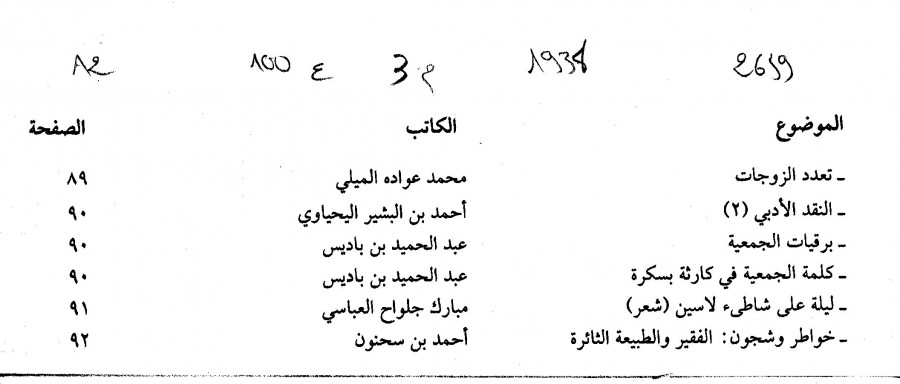 2619 1938 م 3 ع 100 A2
الموضوع الكاتب الصفحة
ـ تعدد الزوجات محمد عواده الميلي ٨٩
ـ النقد الأدبي (٢) أحمد بن البشير اليحياوي ٩٠
ـ برقيات الجمعية عبد الحميد بن باديس ٩٠
ـ كلمة الجمعية في كارثة بسكرة عبد الحميد بن باديس ٩٠
ـ ليلة على شاطىء لاسين (شعر) مبارك جلواح العباسي ٩١
ـ خواطر وشجون: الفقير والطبيعة الثائرة أحمد بن سحنون ٩٢